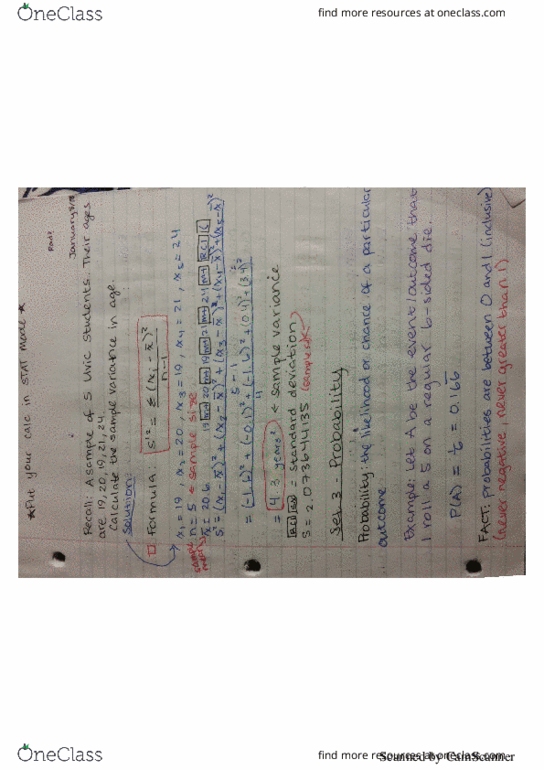 OneClass
find more resources at oneclass.com
*Put your calc in STAT mode *
January
Recall: A sample of 5 UVic students. Their ages
are 19, 20, 19, 21, 24.
Calculate the sample variance in age.
Solution:
Formula: s² = Σ(xi - x̄)²
n-1
x₁ = 19, x₂ = 20, x₃ = 19, x₄ = 21, x₅ = 24
n = 5 ← sample size
sample mean
x̄ = 20.6 19 M+ 20 M+ 19 M+ 21 M+ 24 M+ RCL
s² = (x₁ - x̄)² + (x₂ - x̄)² + (x₃ - x̄)² + (x₄ - x̄)² + (x₅ - x̄)²
5-1
= (-1.6)² + (-0.6)² + (-1.6)² + (0.4)² + (3.4)²
4
= 4.3 years² ← sample variance
= standard deviation
s = 2.073644135 (sample)
Set 3 - Probability
Probability: the likelihood or chance of a particular
outcome
Example: Let A be the event/outcome that
I roll a 5 on a regular 6-sided die.
P(A) = 1/6 = 0.166
FACT: Probabilities are between 0 and 1 (inclusive)
(never negative, never greater than 1)
OneClass
find more resources at oneclass.com
Scanned by CamScanner